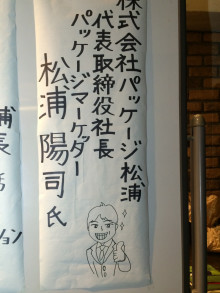 株式会社パッケージ松浦
代表取締役社長
パッケージマーケター
松浦陽司氏